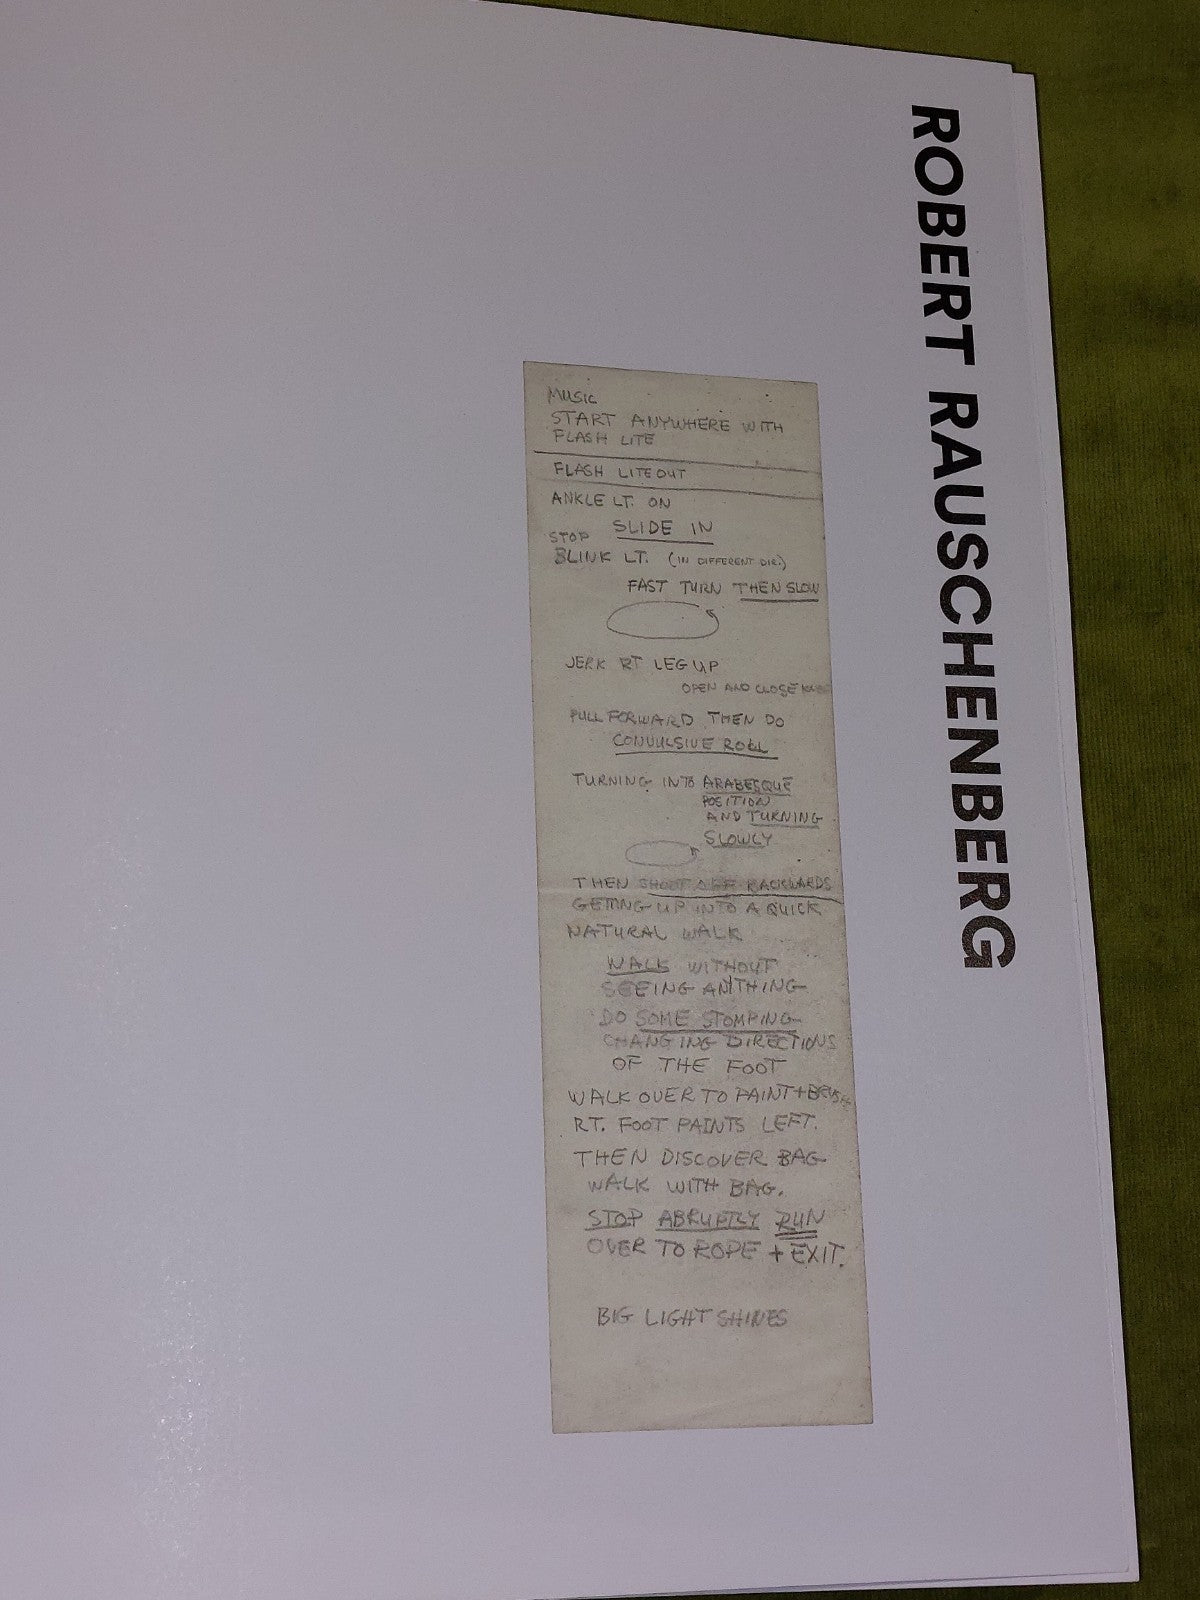 ROBERT RAUSCHENBERG
MUSIC
START ANYWHERE WITH
FLASH LITE
FLASH LITE OUT
ANKLE LT. ON
SLIDE IN
STOP
BLINK LT. (IN DIFFERENT DIR.)
FAST TURN THEN SLOW
JERK RT LEG UP
OPEN AND CLOSE
PULL FORWARD THEN DO
CONVULSIVE ROLL
TURNING INTO ARABESQUE
POSITION
AND TURNING
SLOWLY
THEN SHOOT OFF BACKWARDS
GETTING UP INTO A QUICK
NATURAL WALK
WALK WITHOUT
SEEING ANYTHING
DO SOME STOMPING
CHANGING DIRECTIONS
OF THE FOOT
WALK OVER TO PAINT + BRUSH
RT. FOOT PAINTS LEFT.
THEN DISCOVER BAG
WALK WITH BAG.
STOP ABRUPTLY RUN
OVER TO ROPE + EXIT.
BIG LIGHT SHINES